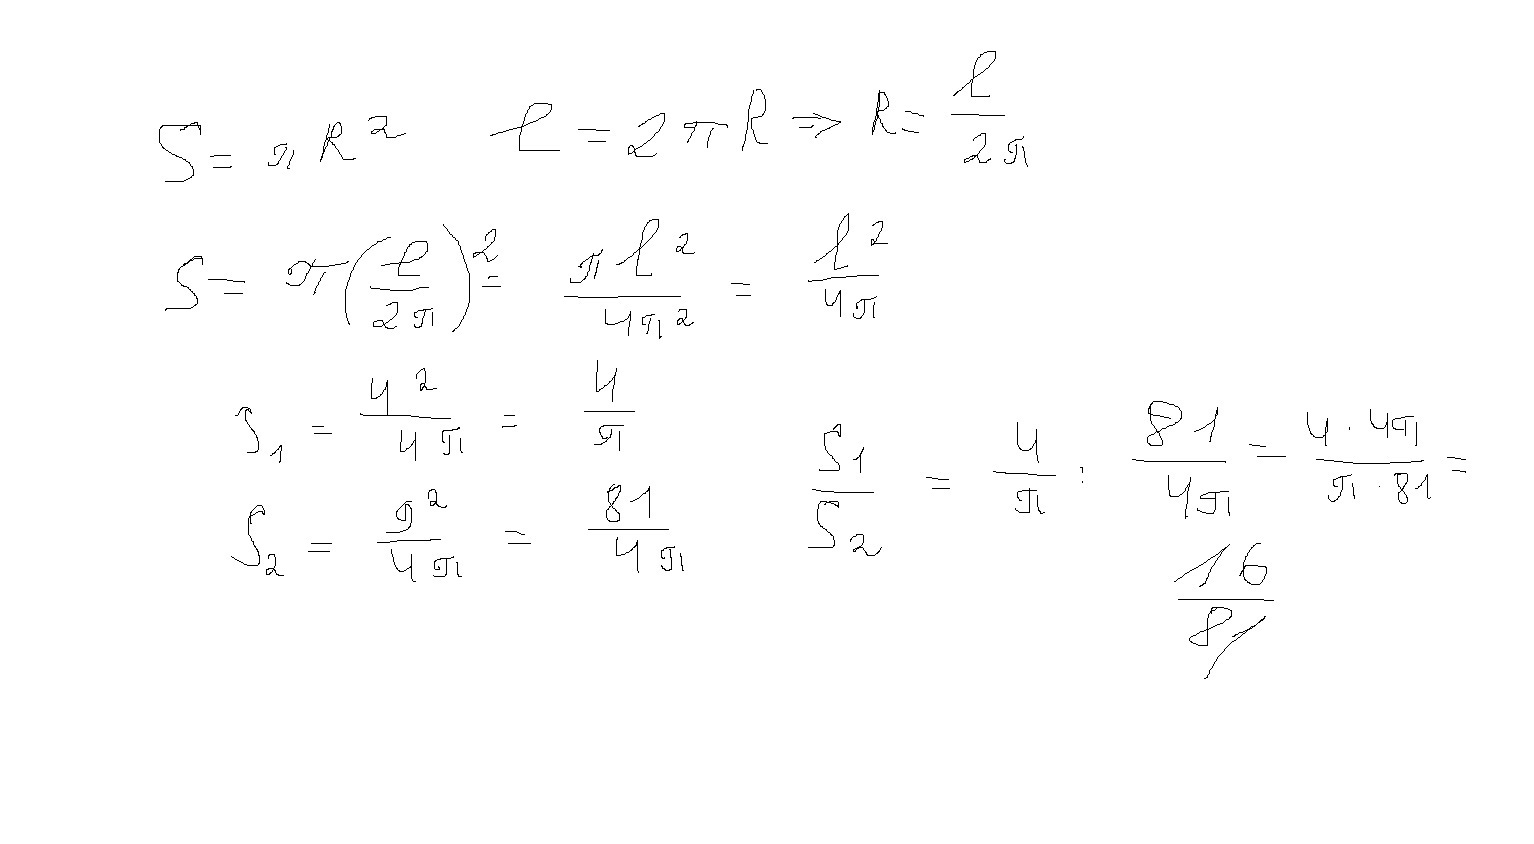 S = πR² ℓ = 2πR ⇒ R = ℓ/(2π)
S = π(ℓ/(2π))² = πℓ²/(4π²) = ℓ²/(4π)
S₁ = 4²/(4π) = 4/π
S₂ = 9²/(4π) = 81/(4π)
S₁/S₂ = 4/π : 81/(4π) = (4·4π)/(π·81) =
16/81